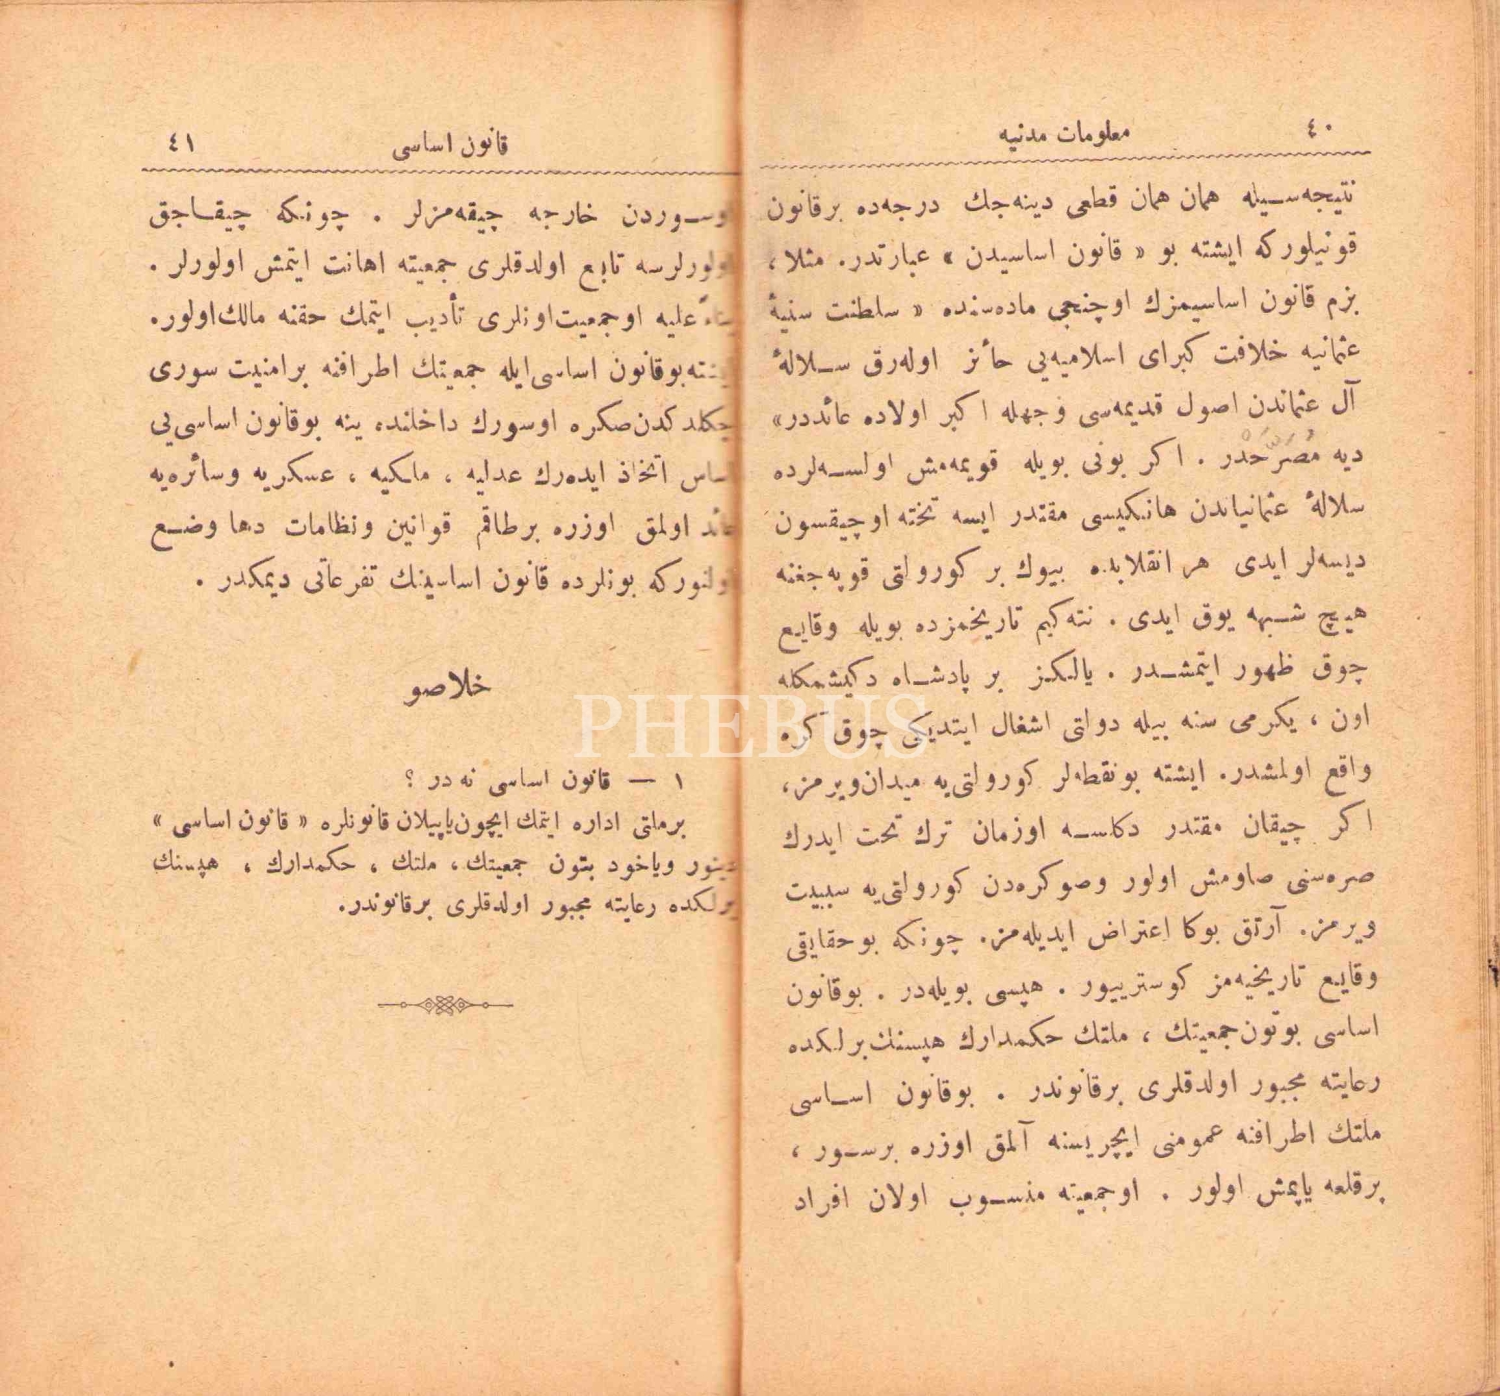 ٤٠
معلومات مدنیه
نتیجه‌سیله همان همان قطعی دینه‌جك درجه‌ده برقانون
قونیلورکه ایشته بو « قانون اساسیدن » عبارتدر. مثلا،
بزم قانون اساسیمزك اوچنجی ماده‌سنده « سلطنت سنیهٔ
عثمانیه خلافت کبرای اسلامیه‌یی حائز اوله‌رق سلالهٔ
آل عثماندن اصول قدیمه‌سی وجهله اکبر اولاده عائددر»
دیه مُصَرَّحْدر . اکر بونی بویله قویمه‌مش اولسه‌لرده
سلالهٔ عثمانیاندن هانکیسی مقتدر ایسه تخته اوچیقسون
دیسه‌لر ایدی هر انقلابده بیوك بر کورولتی قوپه‌جغنه
هیچ شبهه یوق ایدی . نته‌کیم تاریخمزده بویله وقایع
چوق ظهور ایتمشدر . یالکز بر پادشاه دکیشمکله
اون ، یکرمی سنه بیله دولتی اشغال ایتدیکی چوق کره
واقع اولمشدر. ایشته بونقطه‌لر کورولتی‌یه میدان ویرمز،
اکر چیقان مقتدر دکلسه اوزمان ترك تخت ایدرك
صره‌سنی صاومش اولور وصوکره‌دن کورولتی‌یه سببیت
ویرمز. آرتق بوکا اعتراض ایدیله‌مز. چونکه بوحقایقی
وقایع تاریخیه‌مز کوستریور . هپسی بویله‌در . بوقانون
اساسی بوتون جمعیتك ، ملتك حکمدارك هپسنك برلکده
رعایته مجبور اولدقلری برقانوندر . بوقانون اساسی
ملتك اطرافنه عمومنی ایچریسنه آلمق اوزره برسور ،
برقلعه یاپمش اولور . اوجمعیته منسوب اولان افراد
قانون اساسی
٤١
اوسوردن خارجه چیقه‌مزلر . چونکه چیقاجق
اولورلرسه تابع اولدقلری جمعیته اهانت ایتمش اولورلر .
بناءً علیه اوجمعیت اونلری تأدیب ایتمك حقنه مالك اولور.
ایشته بوقانون اساسی ایله جمعیتك اطرافنه برامنیت سوری
چکلدکدن صکره اوسورك داخلنده ینه بوقانون اساسی‌یی
اساس اتخاذ ایده‌رك عدلیه ، ملکیه ، عسکریه وسائره‌یه
عائد اولمق اوزره برطاقم قوانین ونظامات دها وضع
اولنورکه بونلرده قانون اساسینك تفرعاتی دیمکدر .
خلاصو
١ — قانون اساسی نه در ؟
برملتی اداره ایتمك ایچون یاپیلان قانونلره « قانون اساسی »
دینور ویاخود بتون جمعیتك، ملتك ، حکمدارك ، هپسنك
برلکده رعایته مجبور اولدقلری برقانوندر.
PHEBUS